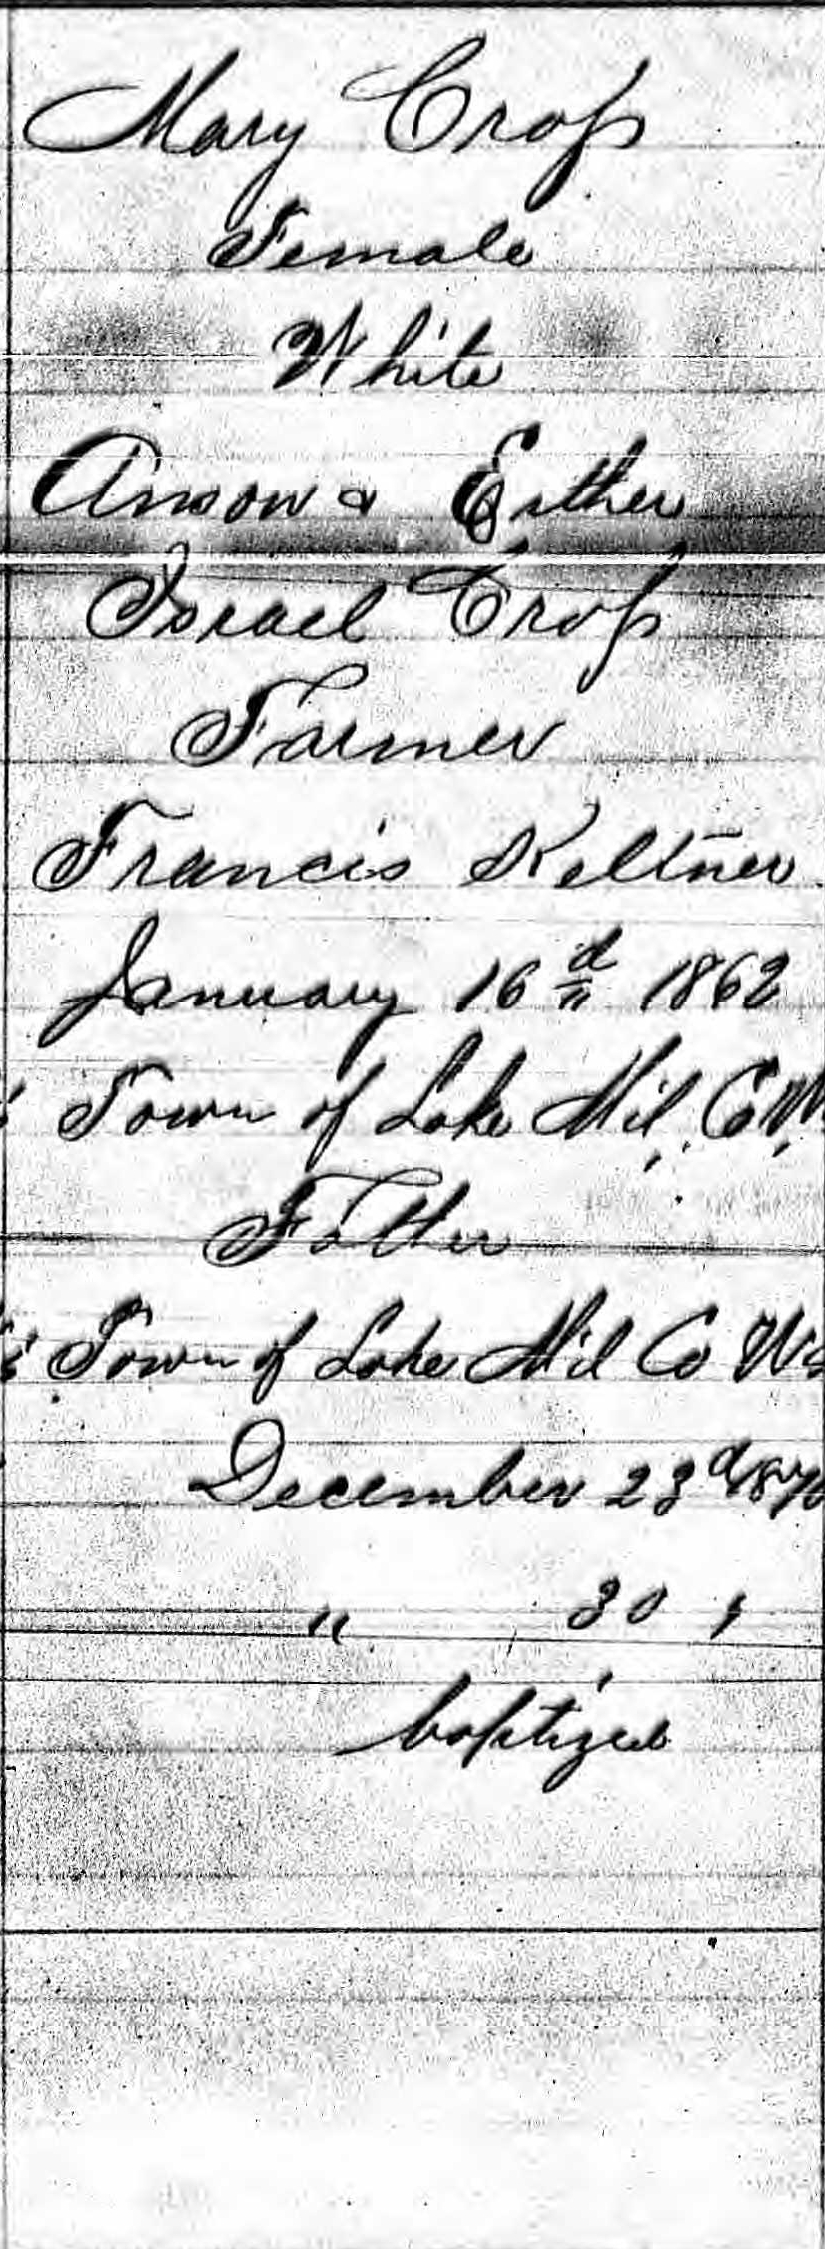 Mary Cross
Female
White
Anson & Esther
Israel Cross
Farmer
Francis Keltner
January 16 d 1862
Town of Lake Mil, Co W
Father
Town of Lake Mil Co Wis
December 23 d 187
" 30 "
baptized